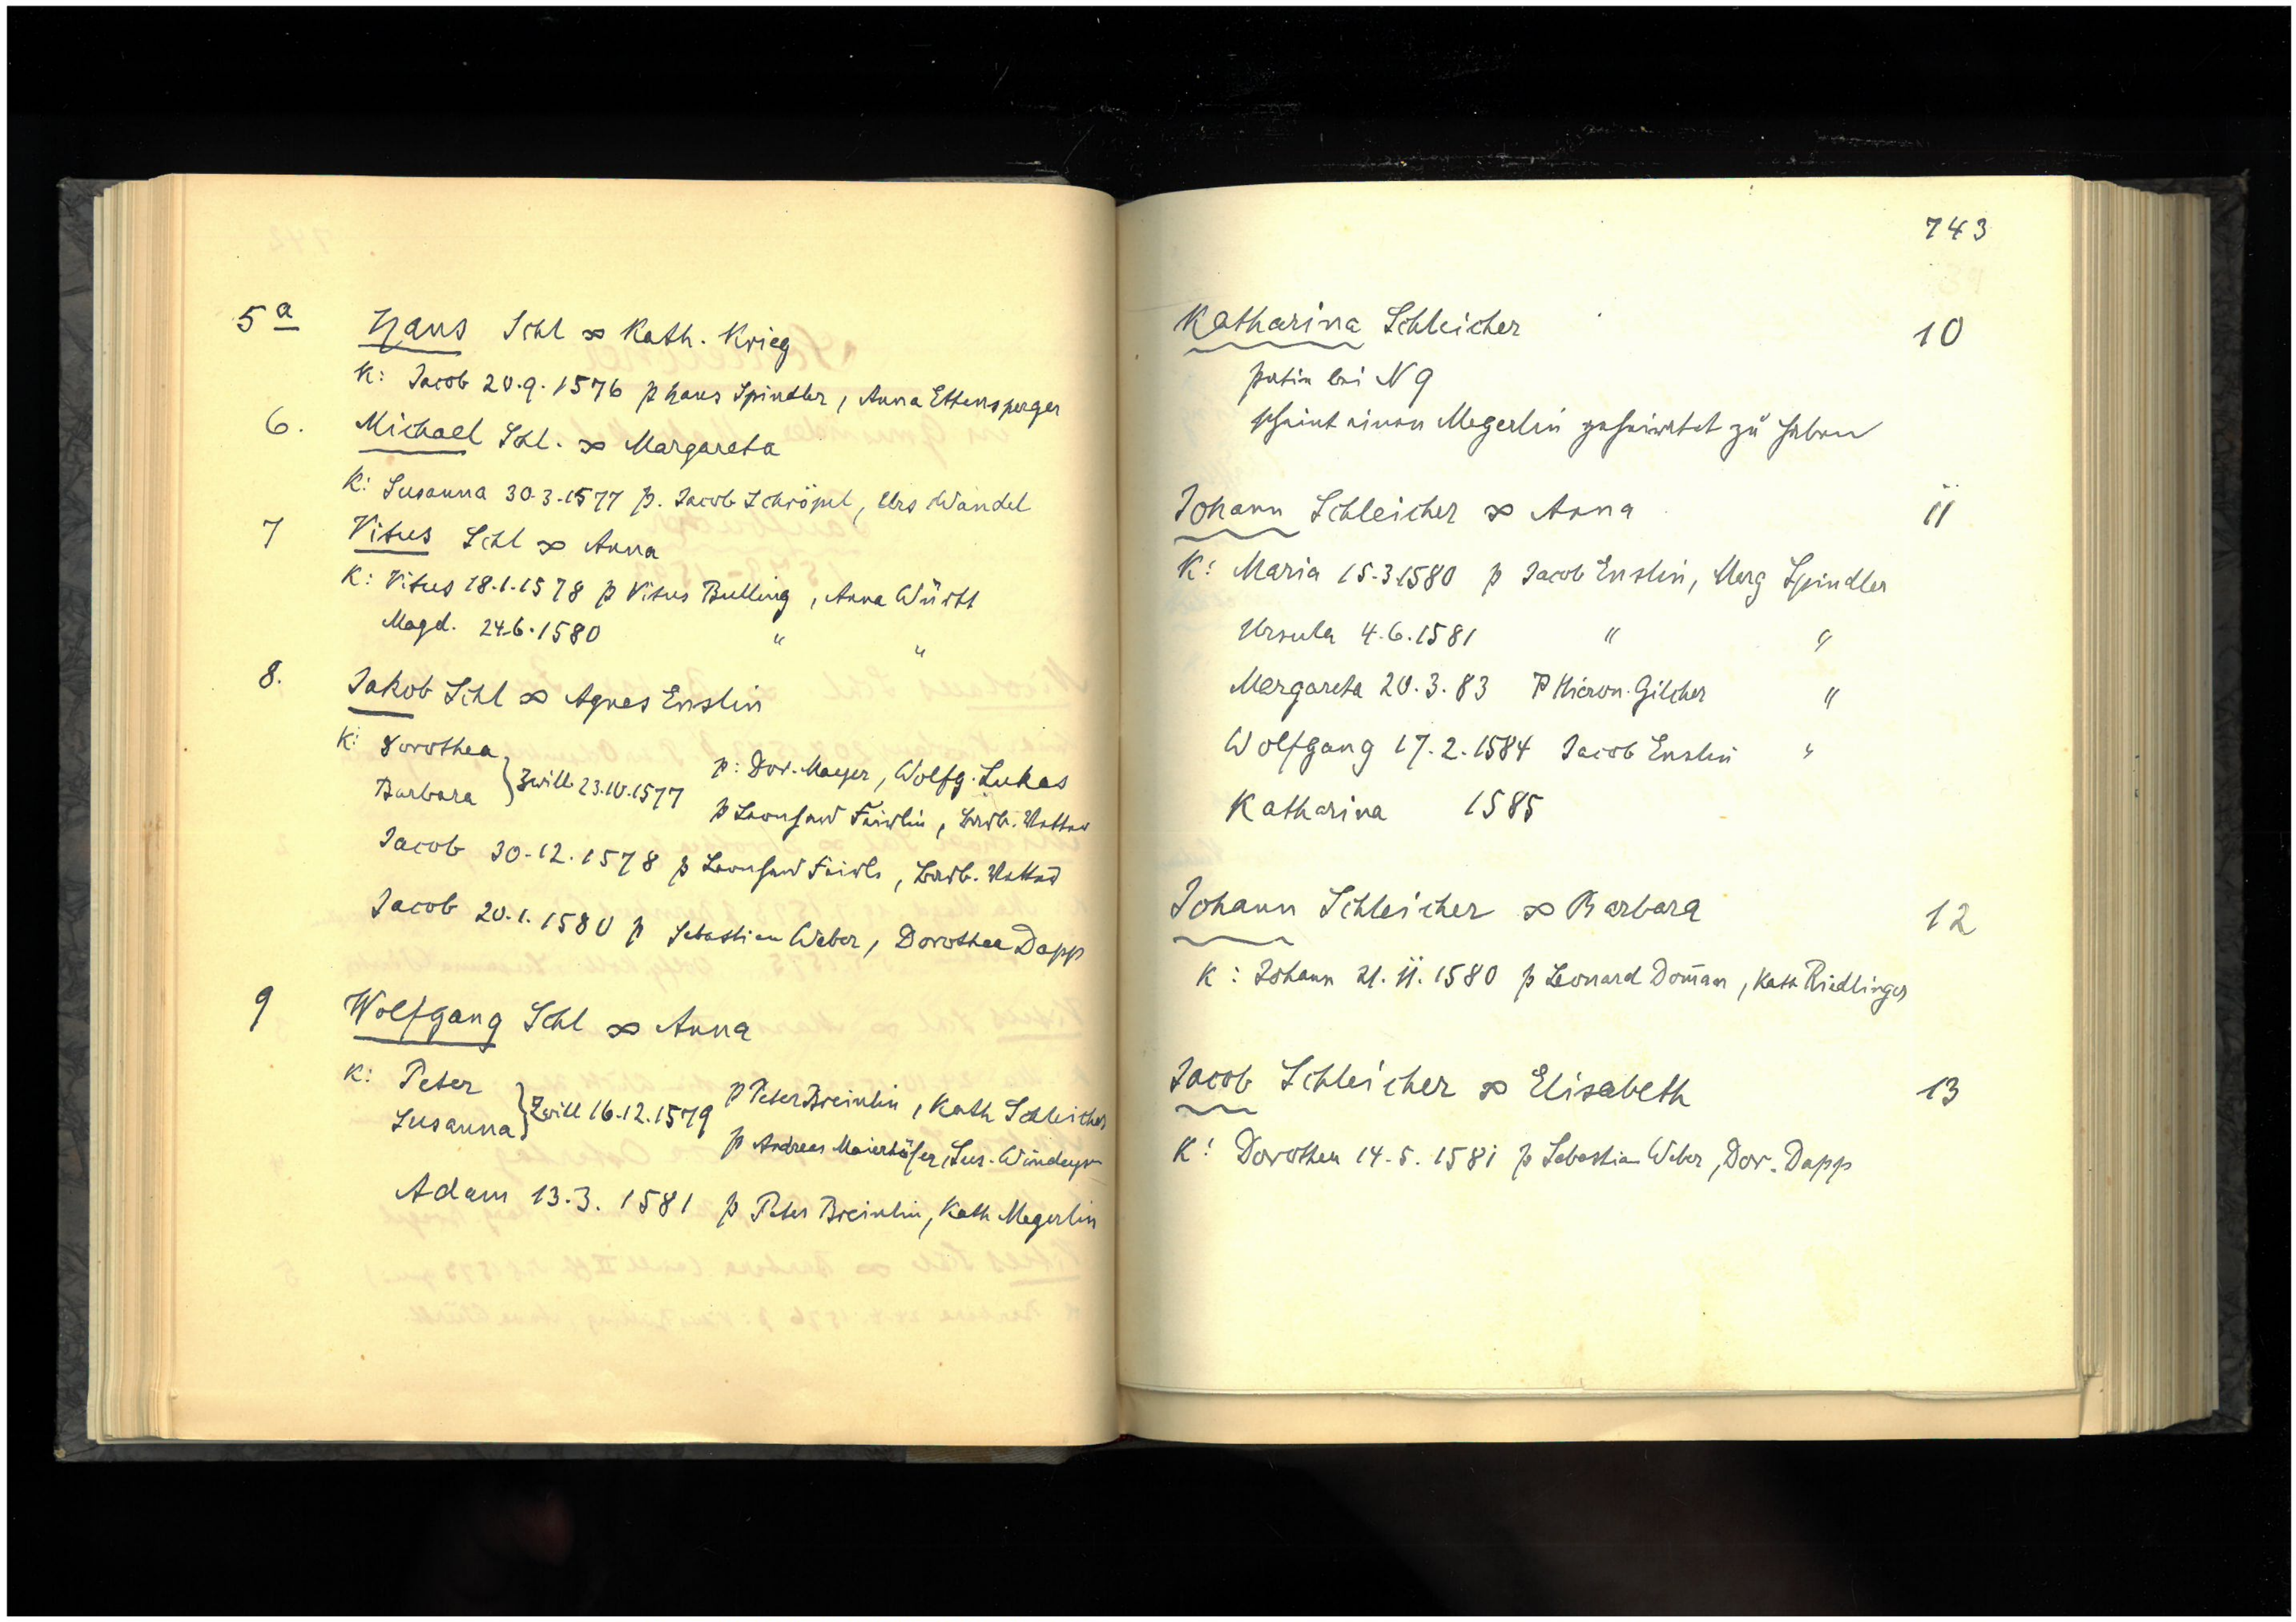 5 a Hans Schl ∞ Kath. Krieg
K: Jacob 20.9.1576 p Hans Spindler, Anna Ettensperger
6. Michael Schl. ∞ Margareta
K: Susanna 30.3.1577 p. Jacob Schröpel, Urs Wandel
7 Vitus Schl ∞ Anna
K: Vitus 18.1.1578 p Vitus Bulling, Anna Württ
Magd. 24.6.1580 " "
8. Jakob Schl ∞ Agnes Enslin
K: Dorothea
Barbara } Zwill. 23.10.1577 p: Dor. Mayer, Wolfg. Lukas
p Leonhard Feirlin, Barb.
Jacob 30.12.1578 p Leonhard, Barb.
Jacob 20.1.1580 p Sebastian Weber, Dorothea Dapp
9 Wolfgang Schl ∞ Anna
K: Peter
Susanna } Zwill 16.12.1579 p Peter Breinlin, Kath Schleicher
p Andreas Maierhöfer, Sus.
Adam 13.3.1581 p Peter Breinlin, Kath Megerlin
743
Katharina Schleicher 10
patin bei N 9
scheint einen Megerlin geheiratet zu haben
Johann Schleicher ∞ Anna 11
K: Maria 15.3.1580 p Jacob Enslin, Marg Spindler
Ursula 4.6.1581 " "
Margareta 20.3.83 P Hieron. Gilcher "
Wolfgang 17.2.1584 Jacob Enslin "
Katharina 1585
Johann Schleicher ∞ Barbara 12
K: Johann 21.11.1580 p Leonard Dom̄an, Kath Riedlinger
Jacob Schleicher ∞ Elisabeth 13
K: Dorothea 14.5.1581 p Sebastian Weber, Dor. Dapp